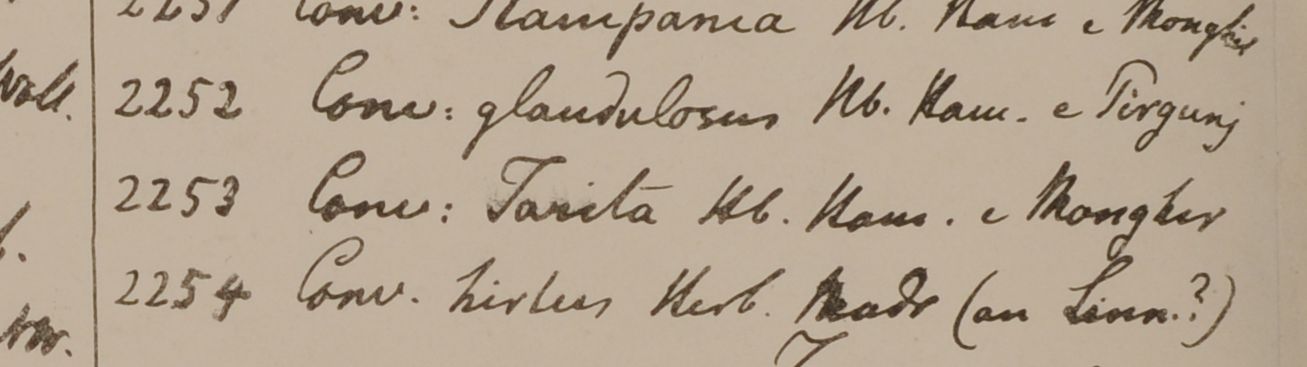 2251 Conv: Stampania Hb. Ham e Monghir
Wall. 2252 Conv: glandulosus Hb. Ham. e Pirgunj
2253 Conv: Tarita Hb. Ham. e Monghir
2254 Conv. hirtus Herb. Madr (an Linn.?)